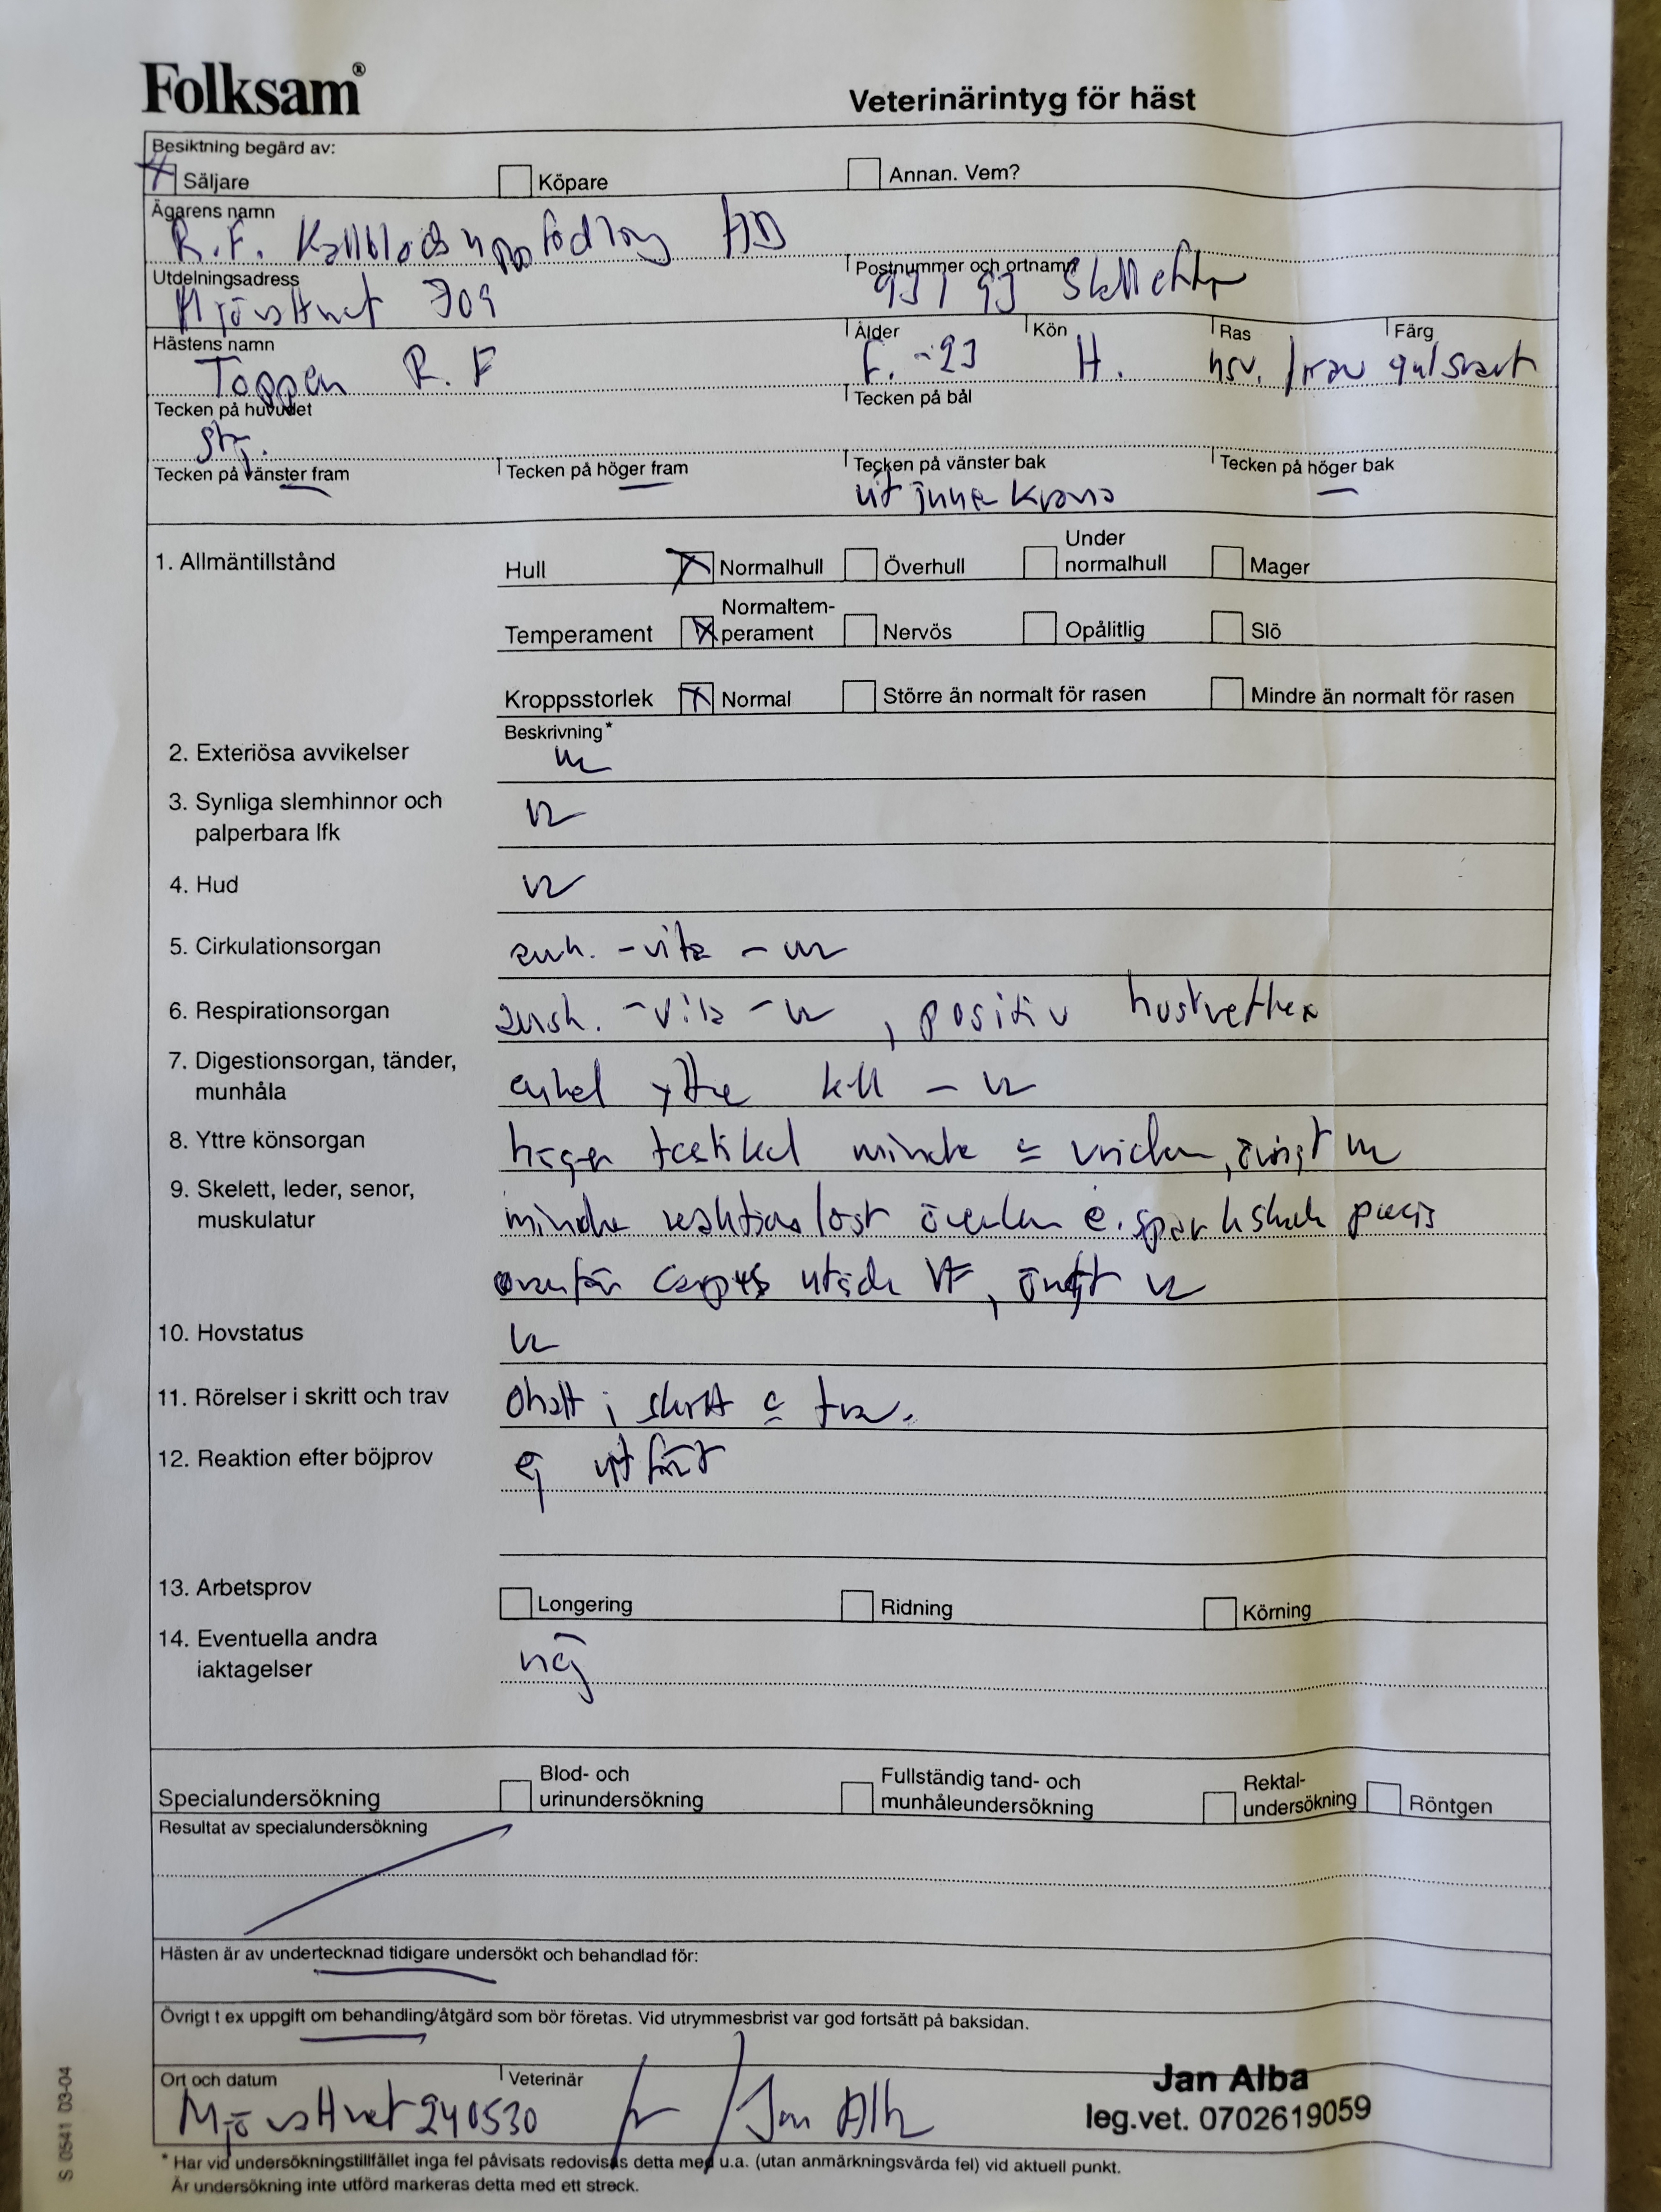 Folksam®
Veterinärintyg för häst
Besiktning begärd av:
Säljare Köpare Annan. Vem?
Ägarens namn
R.F. Kallblodsuppfödning AB
Utdelningsadress Postnummer och ortnamn
Mjövattnet 309 931 93 Skellefteå
Hästens namn Ålder Kön Ras Färg
Toppen R.F f. -23 H. nsv. / gulsvart
Tecken på huvudet Tecken på bål
stj.
Tecken på vänster fram Tecken på höger fram Tecken på vänster bak Tecken på höger bak
vit inner krona
1. Allmäntillstånd
Hull Normalhull Överhull Under normalhull Mager
Temperament Normaltem-perament Nervös Opålitlig Slö
Kroppsstorlek Normal Större än normalt för rasen Mindre än normalt för rasen
Beskrivning*
2. Exteriösa avvikelser ua
3. Synliga slemhinnor och ua
palperbara lfk
4. Hud ua
5. Cirkulationsorgan - vila - ua
6. Respirationsorgan - vila - ua, positiv
7. Digestionsorgan, tänder, enkel yttre koll - ua
munhåla
8. Yttre könsorgan höger testikel mindre vriden, övrigt ua
9. Skelett, leder, senor, mindre reaktionslöst e. sparkskada precis
muskulatur
ovanför carpus utsida VF, övrigt ua
10. Hovstatus ua
11. Rörelser i skritt och trav ohalt i skritt trav.
12. Reaktion efter böjprov ej utfört
13. Arbetsprov Longering Ridning Körning
14. Eventuella andra nej
iaktagelser
Specialundersökning Blod- och urinundersökning Fullständig tand- och munhåleundersökning Rektal-undersökning Röntgen
Resultat av specialundersökning
Hästen är av undertecknad tidigare undersökt och behandlad för:
Övrigt t ex uppgift om behandling/åtgärd som bör företas. Vid utrymmesbrist var god fortsätt på baksidan.
Ort och datum Veterinär
Mjövattnet 240530 Jan Alba
Jan Alba
leg.vet. 0702619059
* Har vid undersökningstillfället inga fel påvisats redovisas detta med u.a. (utan anmärkningsvärda fel) vid aktuell punkt.
Är undersökning inte utförd markeras detta med ett streck.
S 0541 03-04